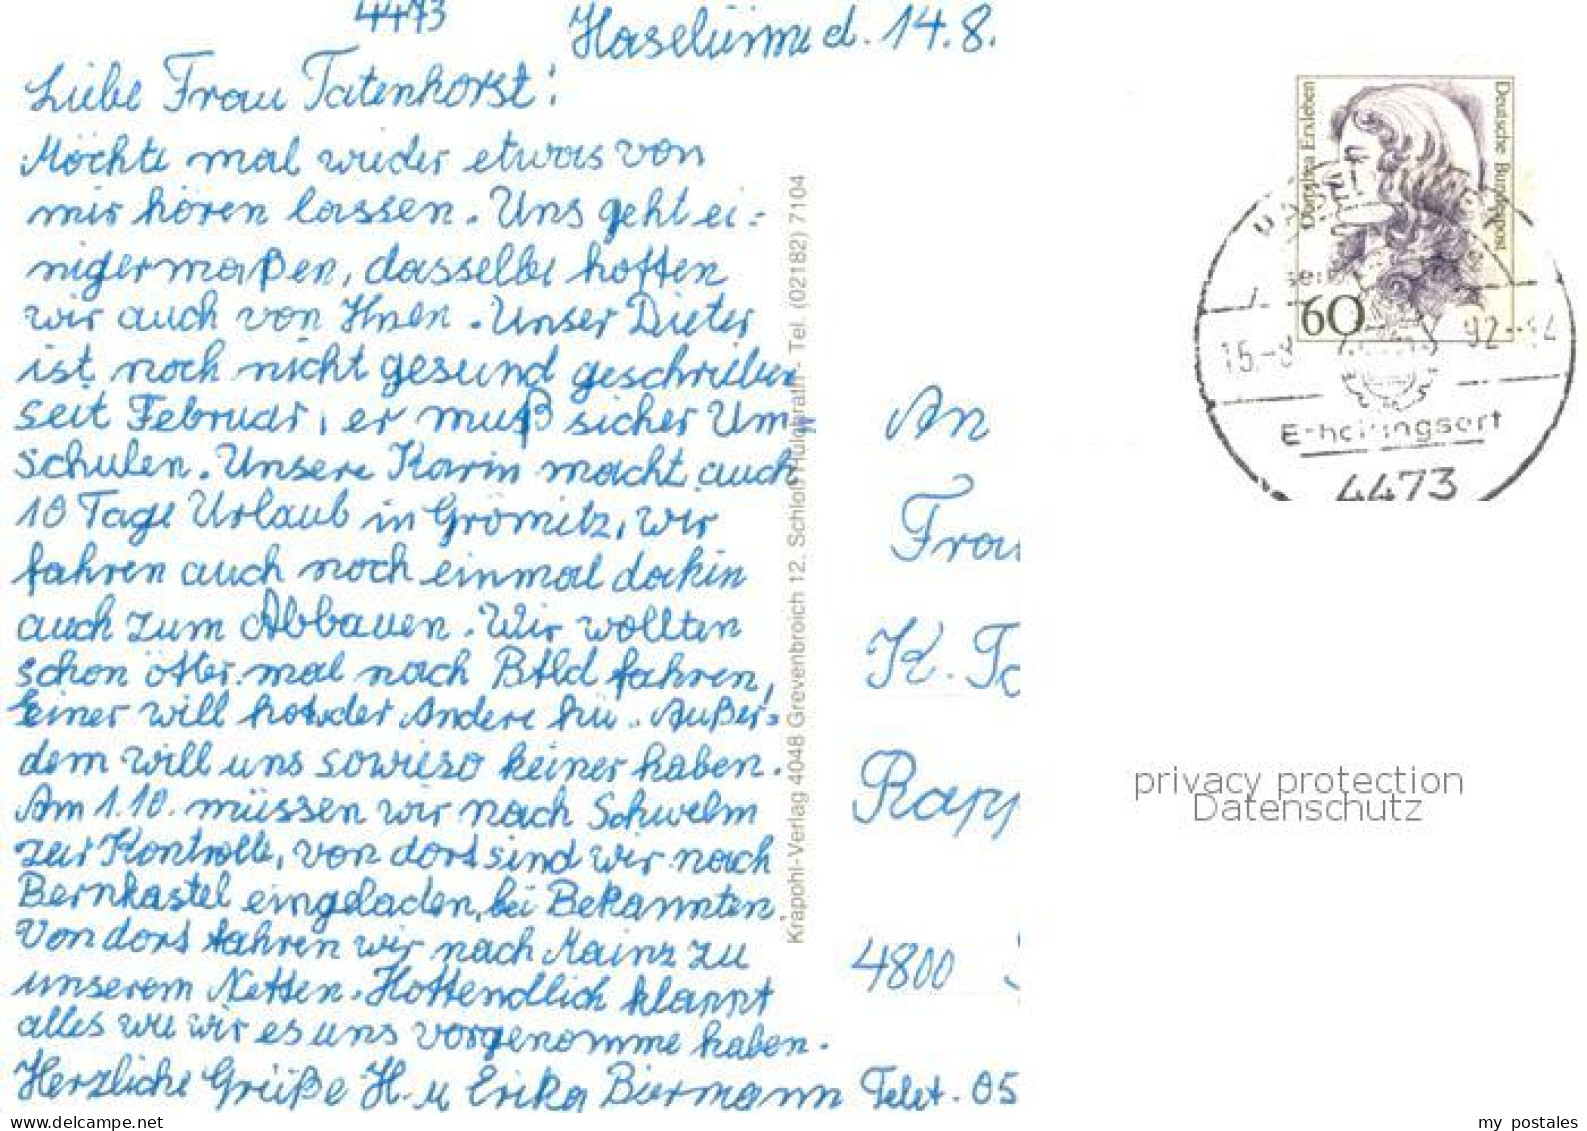 4473
Haselünne d. 14.8.
Liebe Frau Tatenhorst!
Möchte mal wieder etwas von
mir hören lassen. Uns geht ei-
nigermaßen, dasselbe hoffen
wir auch von Ihnen. Unser Dieter
ist noch nicht gesund geschrieben
seit Februar, er muß sicher Um-
schulen. Unsere Karin macht auch
10 Tage Urlaub in Grömitz, wir
fahren auch noch einmal dahin
auch zum Abbauen. Wir wollten
schon öfter mal nach Bfld fahren,
einer will hot der Andere hü. Außer-
dem will uns sowieso keiner haben.
Am 1.10. müssen wir nach Schwelm
zur Kontrolle, von dort sind wir nach
Bernkastel eingeladen, bei Bekannten.
Von dort fahren wir nach Mainz zu
unserem Neffen. Hoffendlich klappt
alles wie wir es uns vorgenomme haben.
Herzliche Grüße H. u Erika Biermann Telef. 05
Krapohl-Verlag 4048 Grevenbroich 12, Schloß Hülchrath - Tel. (02182) 7104
An
Frau
K. Ta
Rapp
4800
Dorothea Erxleben
Deutsche Bundespost
60
15.-8
92--14
Erholungsort
4473
privacy protection
Datenschutz
my postales